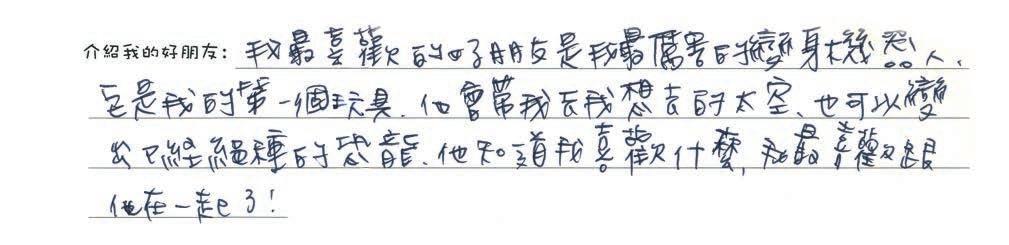 介紹我的好朋友: 我最喜歡的好朋友是我最厲害的變身機器人,
它是我的第一個玩具、他會帶我去我想去的太空、也可以變
出已經絕種的恐龍、他知道我喜歡什麼,我最喜歡跟
他在一起了!